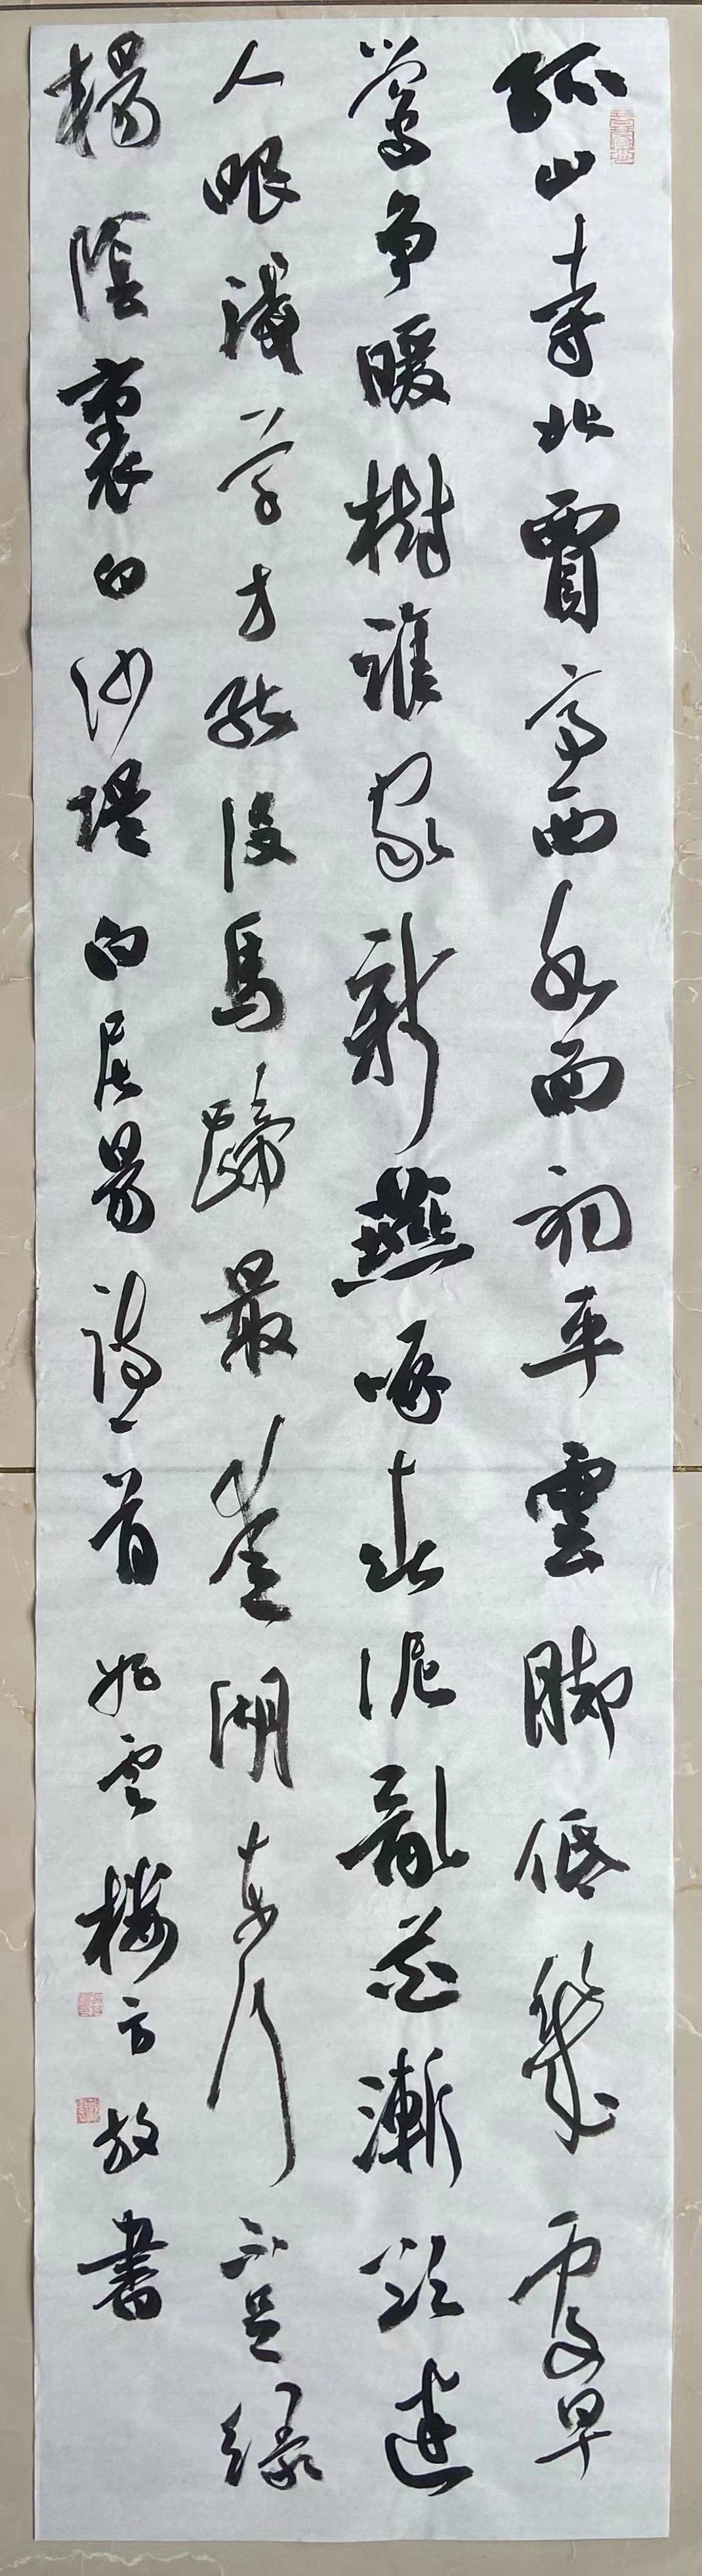 孤山寺北賈亭西水面初平雲脚低幾處早
鶯争暖樹誰家新燕啄春泥亂花漸欲迷
人眼淺草才能没馬蹄最愛湖東行不足緑
楊陰裏白沙堤白居易詩一首雲樓方放書